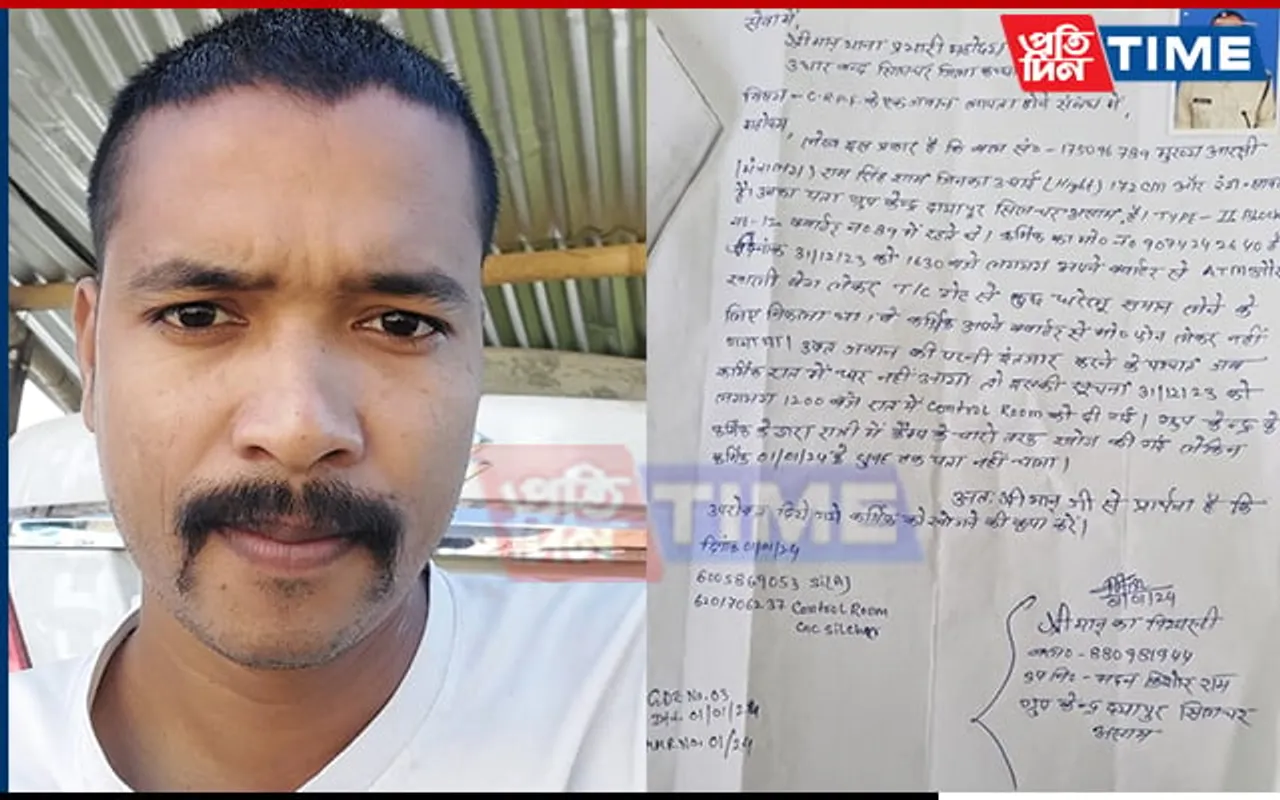 প্রতিদিন TIME
सेवा में,
श्रीमान थाना प्रभारी महोदय
विषय - C.R.P.F. के एक जवान लापता होने संबंध में,
महोदय,
लेख इस प्रकार है कि बल सं० - 175096789 मुख्य आरक्षी
राम सिंह शाम जिनका उचाई (Hight) 172 cm और रंग - सावला
है। उनका पता ग्रुप केन्द्र दयापुर सिलचर असाम है। TYPE - II Block
न० - 12 क्वार्टर न० 89 में रहते थे। कार्मिक का मो० न० 9074242640 है
दिनांक 31/12/23 को 1630 बजे लगभग अपने क्वार्टर से ATM और
खाली बेग लेकर T/C गेट से कुछ घरेलू समान लेने के
लिए निकला था। कार्मिक अपने क्वार्टर से मो० फोन लेकर नहीं
गया था। उक्त जवान की पत्नी इंतजार करने के पश्चात जब
कार्मिक रात में घर नहीं आया तो इसकी सूचना 31/12/23 को
लगभग 1200 बजे रात में Control Room को दी गई। ग्रुप केन्द्र के
कार्मिक के द्वारा रात्री में कैम्प के चारो तरफ खोज की गई लेकिन
कार्मिक 01/01/24 के सुबह तक पता नहीं चला।
अतः श्रीमान जी से प्रार्थना है कि
उपरोक्त दिये गये कार्मिक को खोजने की कृपा करें।
दिनांक 01/01/24
6005869053 SI(A)
6201706237 Control Room
GC Silchar
01/01/24
श्रीमान का विश्वासी
बल सं० - 880981944
उप नि० - मदन किशोर राम
ग्रुप केन्द्र दयापुर सिलचर
असाम
GDE No. 03
Dtd. 01/01/24
M.R. No. 01/24
প্রতিদিন TIME